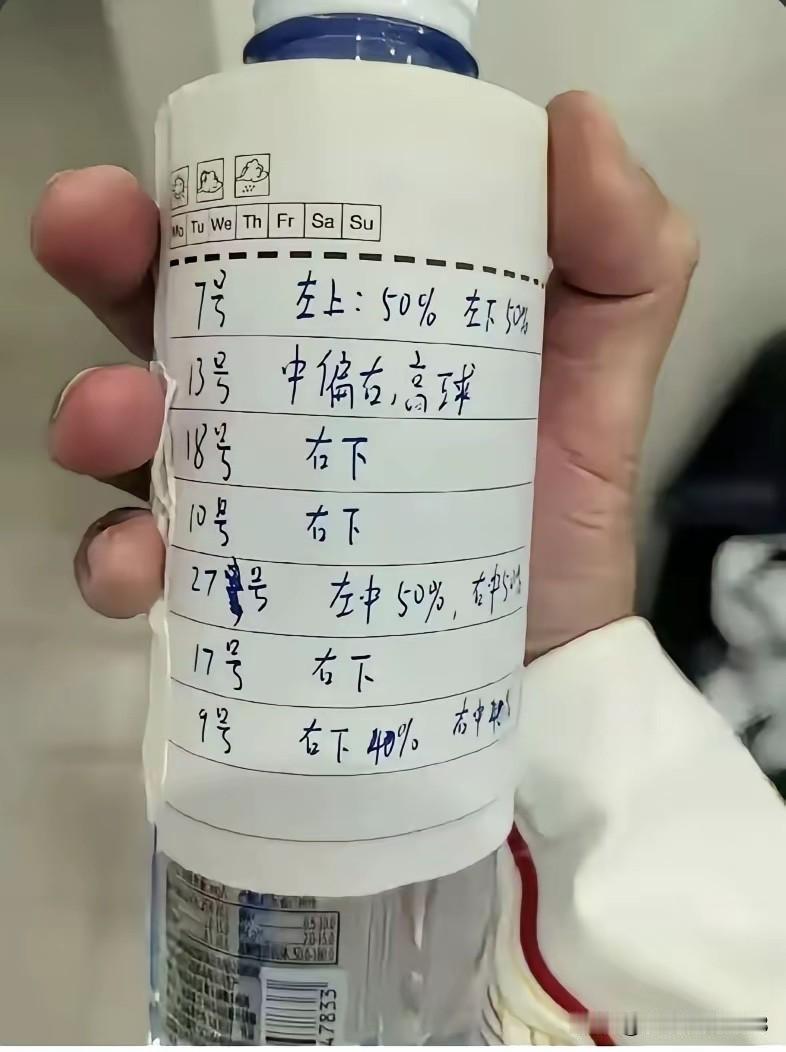 Mo Tu We Th Fr Sa Su
7号 左上：50% 左下50%
13号 中偏右，高球
18号 右下
10号 右下
27号 左中50%，右中50%
17号 右下
9号 右下40% 右中
47833